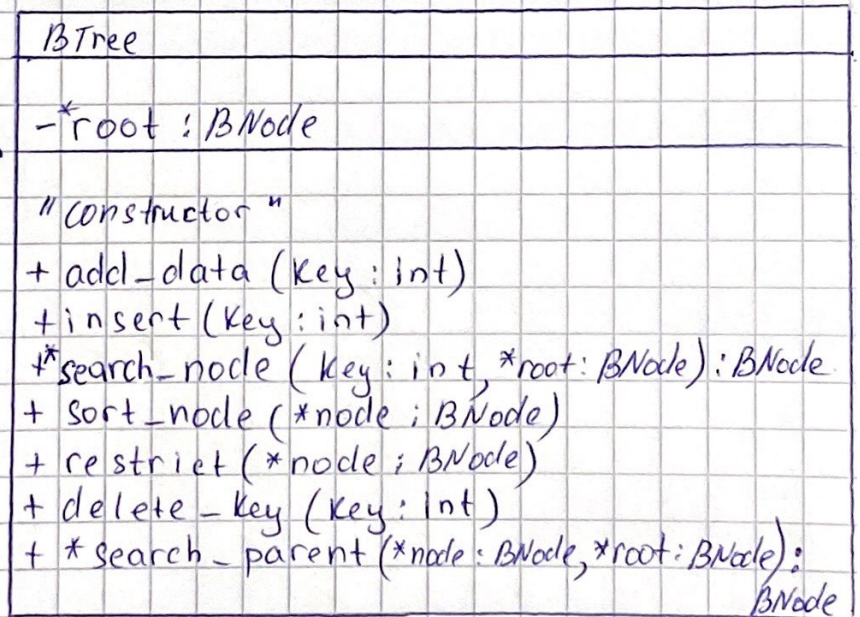 BTree
-*root : BNode
"constructor"
+ add_data (key : int)
+ insert (key : int)
+*search_node (key : int, *root : BNode) : BNode
+ sort_node (*node : BNode)
+ restrict (*node : BNode)
+ delete_key (key : int)
+ *search_parent (*node : BNode, *root : BNode) :
BNode